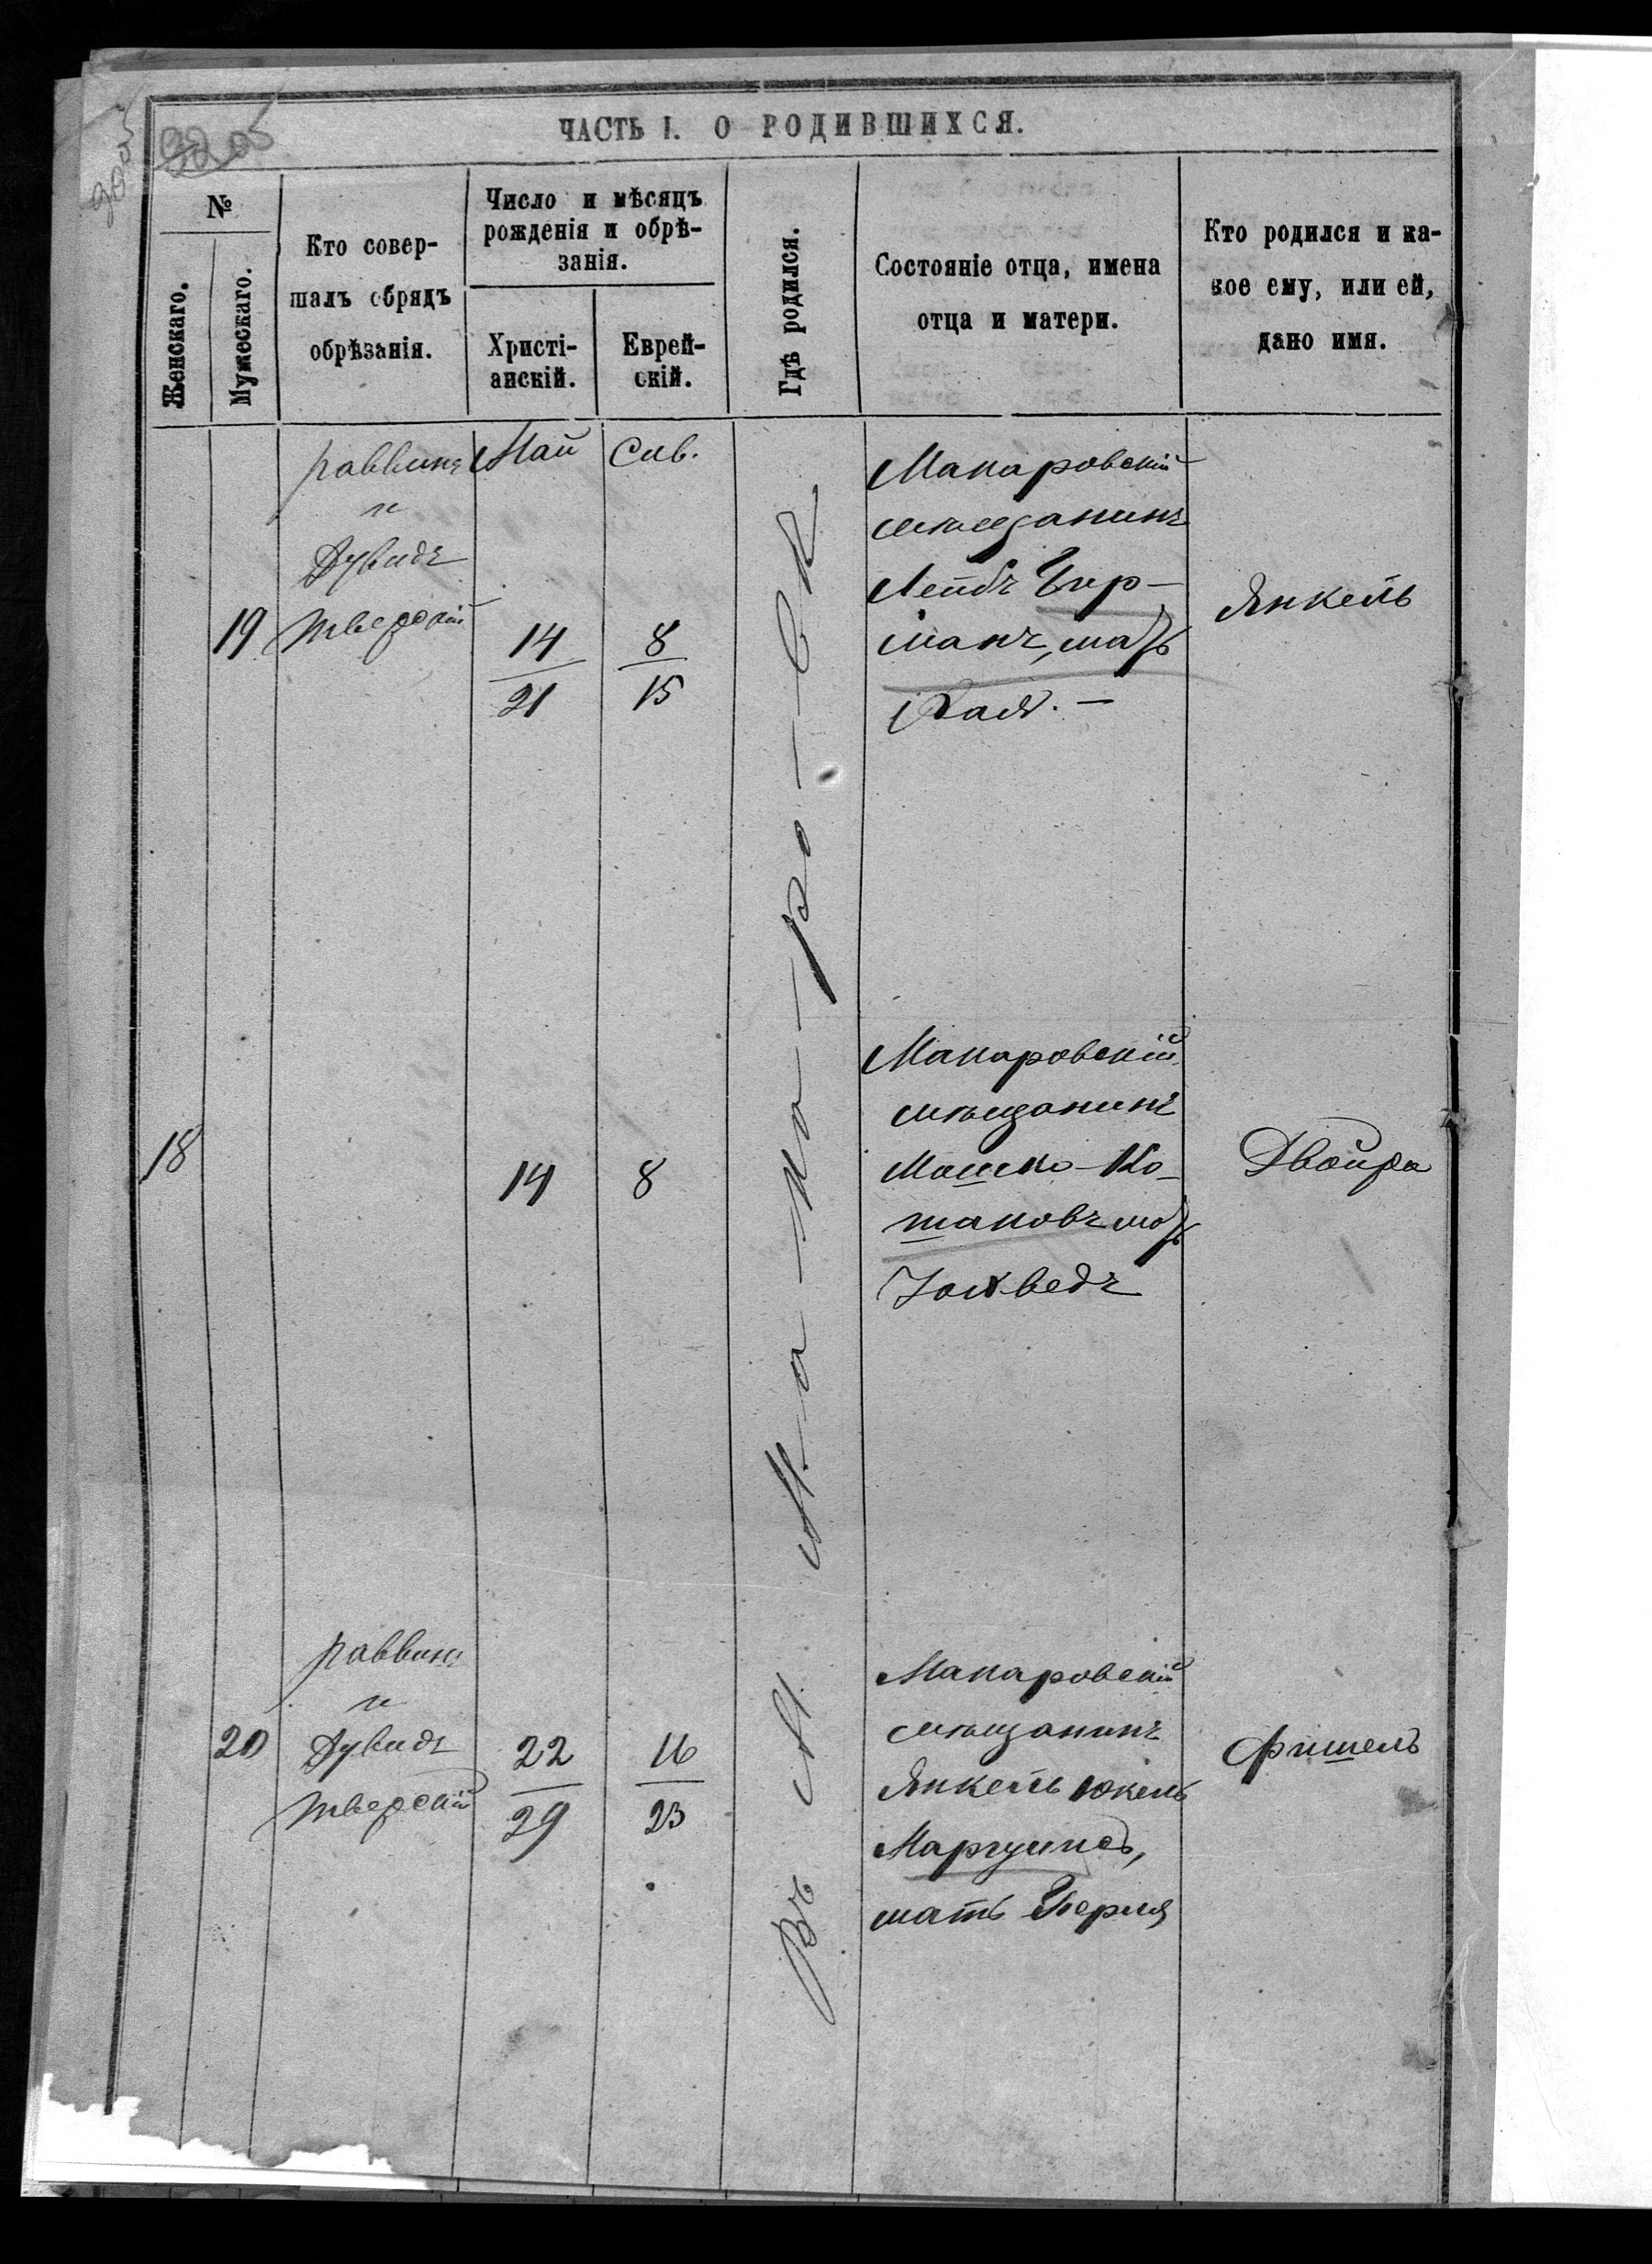 ЧАСТЬ I. О РОДИВШИХСЯ.
№
Женскаго.
Мужескаго.
Кто совер-
шалъ обрядъ
обрѣзанія.
Число и мѣсяцъ
рожденія и обрѣ-
занія.
Христі-
анскій.
Еврей-
скій.
Гдѣ родился.
Состояніе отца, имена
отца и матери.
Кто родился и ка-
кое ему, или ей,
дано имя.
Въ М. Ма-ка-ро-вѣ
раввинъ
и
Дувидъ
Тверскій
19
Май
14
21
Сив.
8
15
Макаровскій
мѣщанинъ
Лейбъ
манъ, мать
Хая. —
Янкель
18
14
8
Макаровскій
мѣщанинъ
Мошко Ко-
шановъ мать
Іохведъ
Двойра
20
раввинъ
и
Дувидъ
Тверскій
22
29
16
23
Макаровскій
мѣщанинъ
Янкель Юкель
мать Перля
Фишель